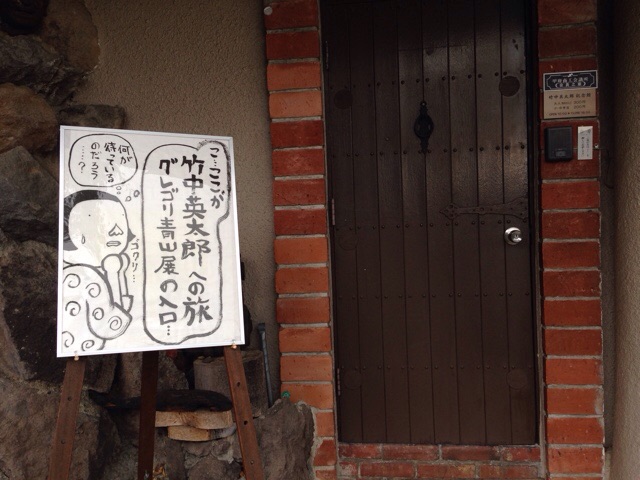 こ…ここが
竹中英太郎への旅
グレゴリ青山展の入口…
何が
待っている
のだろう
……?
ゴクリ…
甲府商工会議所
竹中英太郎 記念館